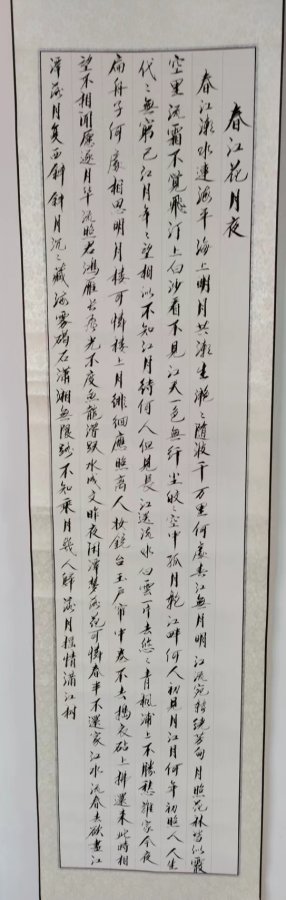 春江花月夜
春江潮水連海平海上明月共潮生灧〻隨波千万里何處春江無月明江流宛轉繞芳甸月照花林皆似霰
空里流霜不覺飛汀上白沙看不見江天一色無纤尘皎〻空中孤月輪江畔何人初見月江月何年初照人人生
代〻無窮已江月年〻望相似不知江月待何人但見長江送流水白雲一片去悠〻青楓浦上不勝愁誰家今夜
扁舟子何處相思明月樓可憐樓上月徘徊應照離人妝鏡台玉戶帘中卷不去擣衣砧上拂還來此時相
望不相聞願逐月華流照君鴻雁長飛光不度魚龍潛躍水成文昨夜閑潭夢落花可憐春半不還家江水流春去欲盡江
潭落月復西斜斜月沉〻藏海霧碣石瀟湘無限路不知乘月幾人歸落月搖情滿江樹